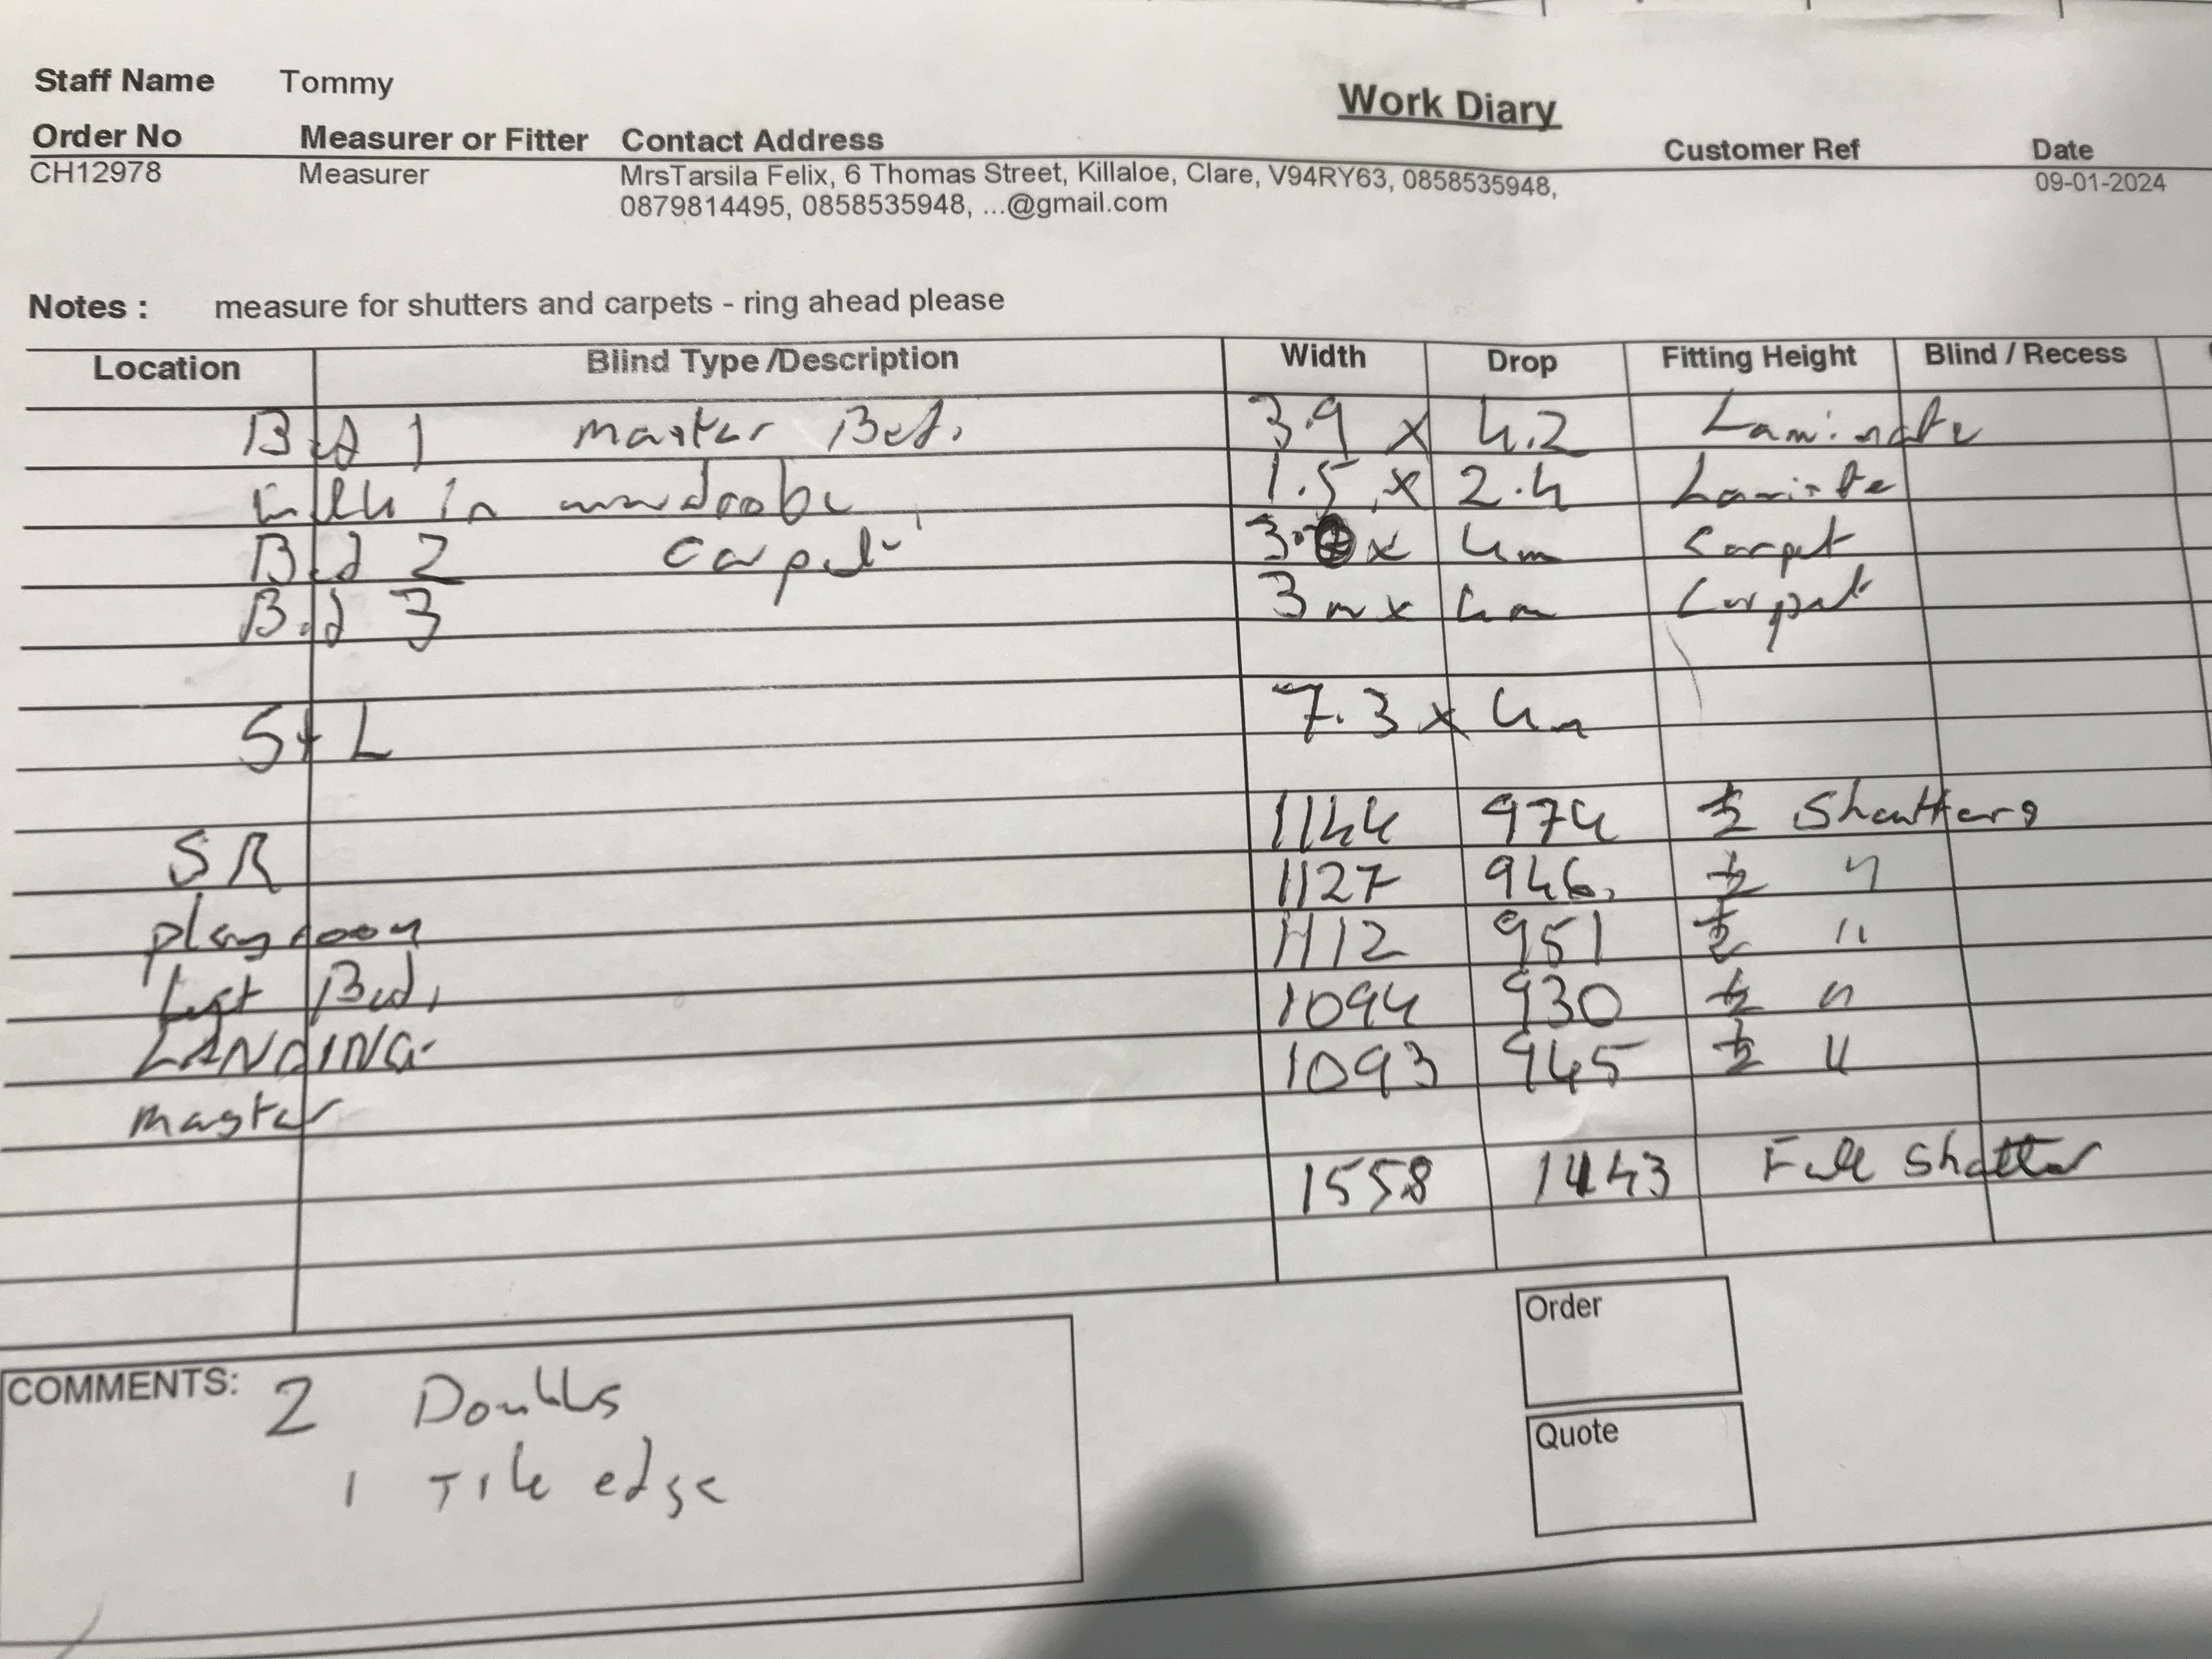 Staff Name Tommy
Work Diary
Order No Measurer or Fitter Contact Address Customer Ref Date
CH12978 Measurer MrsTarsila Felix, 6 Thomas Street, Killaloe, Clare, V94RY63, 0858535948, 09-01-2024
0879814495, 0858535948, ...@gmail.com
Notes : measure for shutters and carpets - ring ahead please
Location Blind Type /Description Width Drop Fitting Height Blind / Recess
Bed 1 master Bed. 3.9 x 4.2 Laminate
in wardrobe 1.5 x 2.4 Laminte
Bed 2 carpet 3. x 4m Carpet
Bed 3 3m x 4m Carpet
S+L 7.3 x 4m
SR 1144 974 ½ Shutters
playroom 1127 946 ½ "
Bed, 1112 951 ½ "
LANDING 1094 930 ½ "
master 1093 945 ½ "
1558 1443 Full Shutter
Order
COMMENTS: 2 Doubles
1 Tile edge
Quote